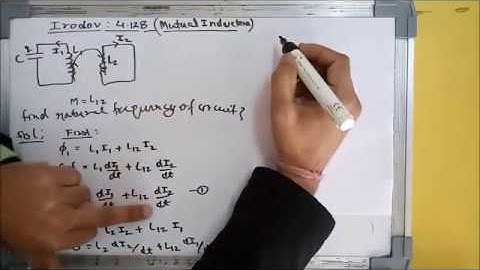 Irodov : 4.128 (Mutual Inductance)
q I₁ L₁ I₂
C L₂
M = L₁₂
find natural frequency of circuit?
Sol: First:
ϕ₁ = L₁I₁ + L₁₂ I₂
L₁ dI₁/dt + L₁₂ dI₂/dt
dI₁/dt + L₁₂ dI₂/dt — ①
L₂I₂ + L₁₂ I₁
0 = L₂ dI₂/dt + L₁₂ dI₁/